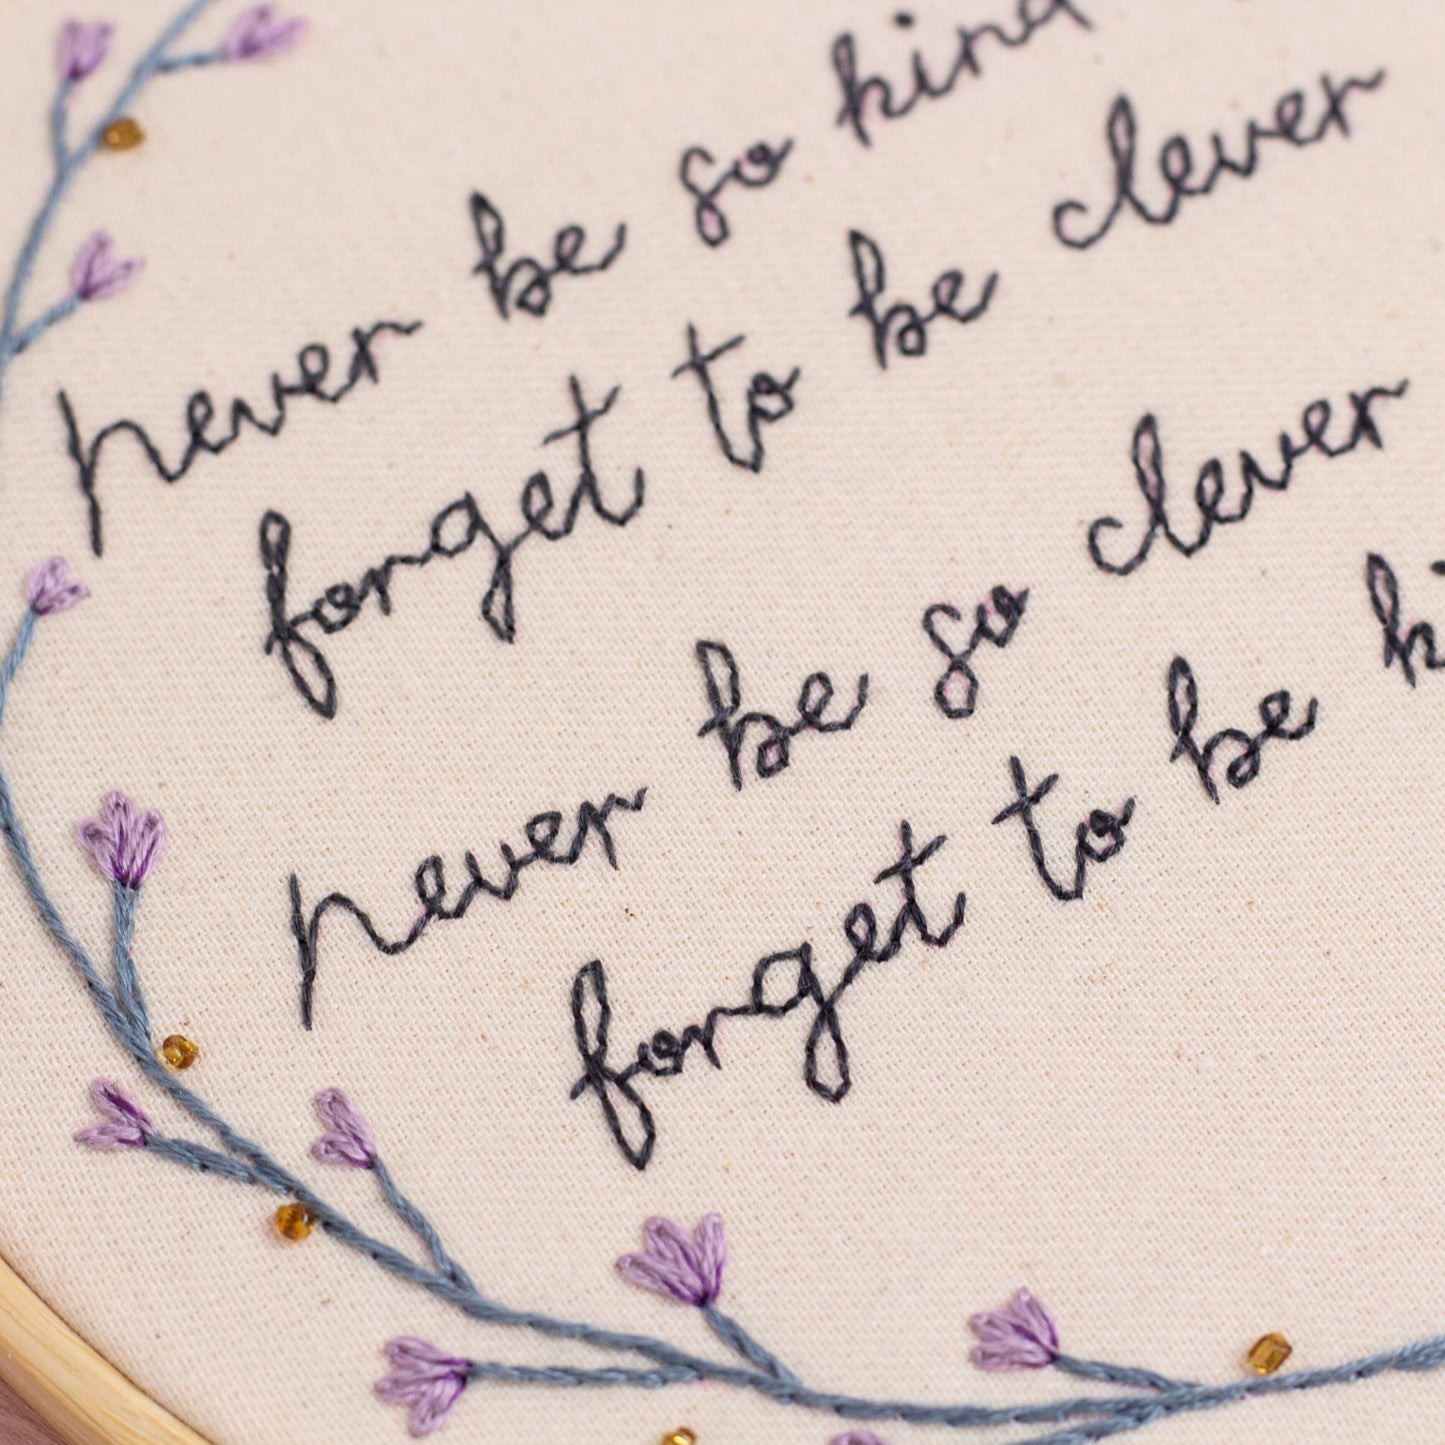 never be so kind
forget to be clever
never be so clever
forget to be ki